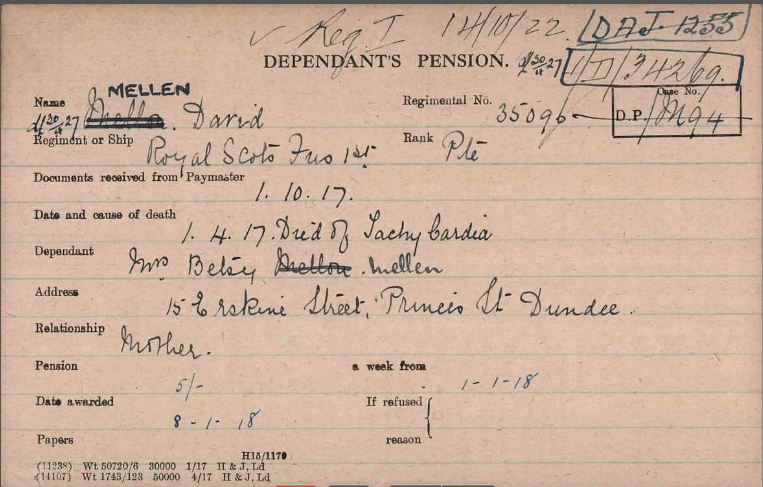 ✓ Reg. I 14/10/22. DAJ. 1255
DEPENDANT'S PENSION. 30/4/27 1/D/34269.
MELLEN
Name David Regimental No. 35096 Case No. D.P./M94
30/4/27
Regiment or Ship Royal Scots Fus 1st Rank Pte
Documents received from Paymaster
1. 10. 17.
Date and cause of death
1. 4. 17. Died of Tachy Cardia
Dependant Mrs Betsy Mellon. Mellen
Address 15 Erskine Street, Princes St Dundee.
Relationship Mother.
Pension 5/- a week from 1-1-18
Date awarded 8-1-18 If refused
Papers reason
H15/1179
(11238) Wt 50720/6 30000 1/17 H & J, Ld
(14107) Wt 1743/123 50000 4/17 H & J, Ld